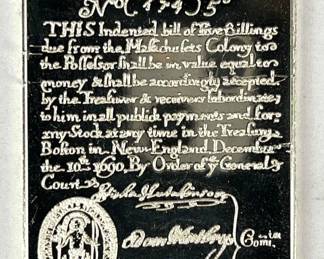 THIS Indented bill of Five Shillings
due from the Massachusets Colony to
the Possessor shall be in value equal to
money & shall be accordingly accepted
by the Treasurer & receivers subordinate
to him in all publick payments and for
any Stock at any time in the Treasury
Boston in New-England December
the 10th 1690. By Order of ye General
Court
Adam Winthrop
Comitee